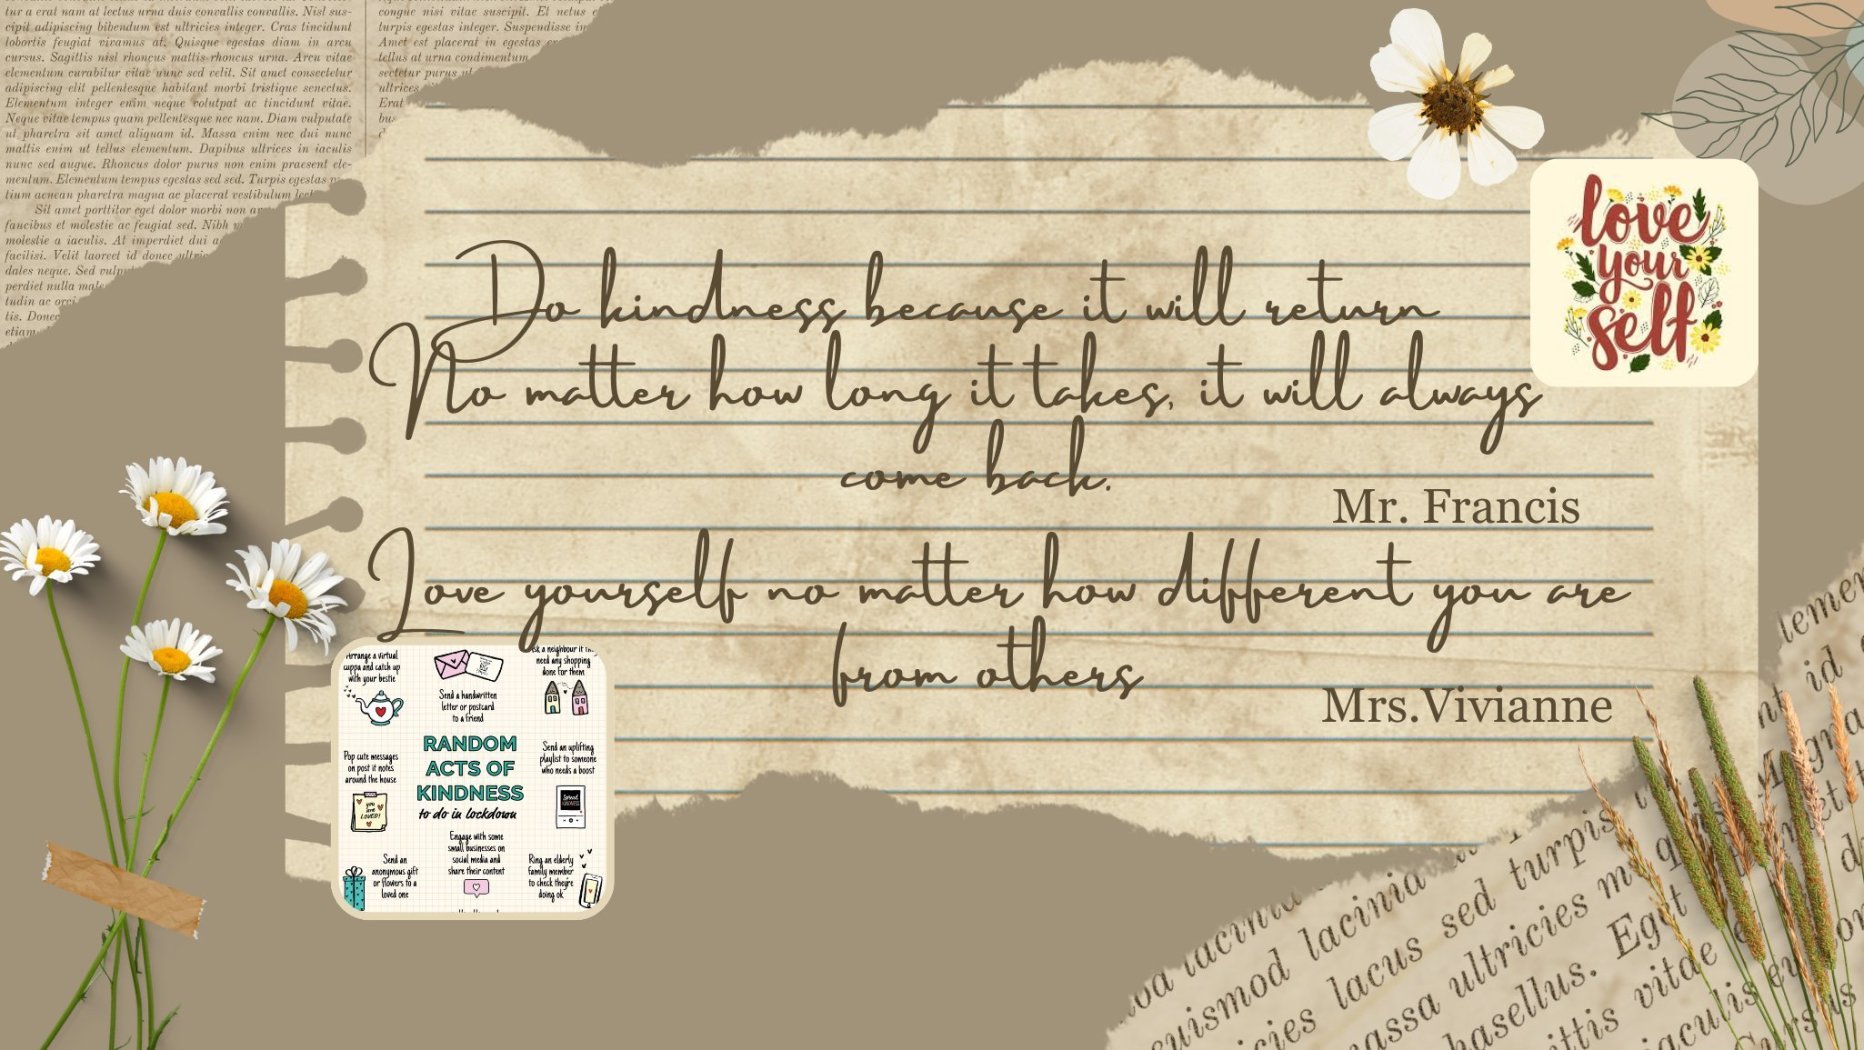 tur a erat nam at lectus urna duis convallis convallis. Nisl sus-
cipit adipiscing bibendum est ultricies integer. Cras tincidunt
lobortis feugiat vivamus at. Quisque egestas diam in arcu
cursus. Sagittis nisl rhoncus mattis rhoncus urna. Arcu vitae
elementum curabitur vitae nunc sed velit. Sit amet consectetur
adipiscing elit pellentesque habitant morbi tristique senectus.
Elementum integer enim neque volutpat ac tincidunt vitae.
Neque vitae tempus quam pellentesque nec nam. Diam vulputate
ut pharetra sit amet aliquam id. Massa enim nec dui nunc
mattis enim ut tellus elementum. Dapibus ultrices in iaculis
nunc sed augue. Rhoncus dolor purus non enim praesent ele-
mentum. Elementum tempus egestas sed sed. Turpis egestas
tium aenean pharetra magna ac placerat vestibulum
Sit amet porttitor eget dolor morbi non
faucibus et molestie ac feugiat sed. Nibh
molestie a iaculis. At imperdiet dui
facilisi. Velit laoreet id donec
dales neque. Sed
perdiet nulla
tudin ac
tis. Donec
etiam
congue nisi vitae suscipit. Et netus
turpis egestas integer. Suspendisse
Amet est placerat in egestas
tellus at urna condimentum
sectetur purus
ultrices
Erat
Do kindness because it will return
No matter how long it takes, it will always
come back.
Mr. Francis
Love yourself no matter how different you are
from others
Mrs.Vivianne
love
your
self
Arrange a virtual
cuppa and catch up
with your bestie
Send a handwritten
letter or postcard
to a friend
a neighbour it
need any shopping
done for them
Pop cute messages
on post it notes
around the house
you
are
LOVED!
RANDOM
ACTS OF
KINDNESS
to do in lockdown
Send an uplifting
playlist to someone
who needs a boost
Spread
KINDNESS
Send an
anonymous gift
or flowers to a
loved one
Engage with some
small businesses on
social media and
share their content
Ring an elderly
family member
to check they're
doing ok
id
lacinia
euismod lacinia
lacus sed turpis
massa ultricies
phasellus. Eget
vitae
iaculis